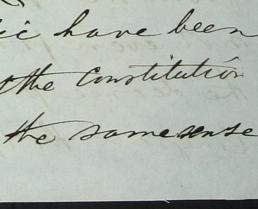 ic have been
the Constitution
the same sense